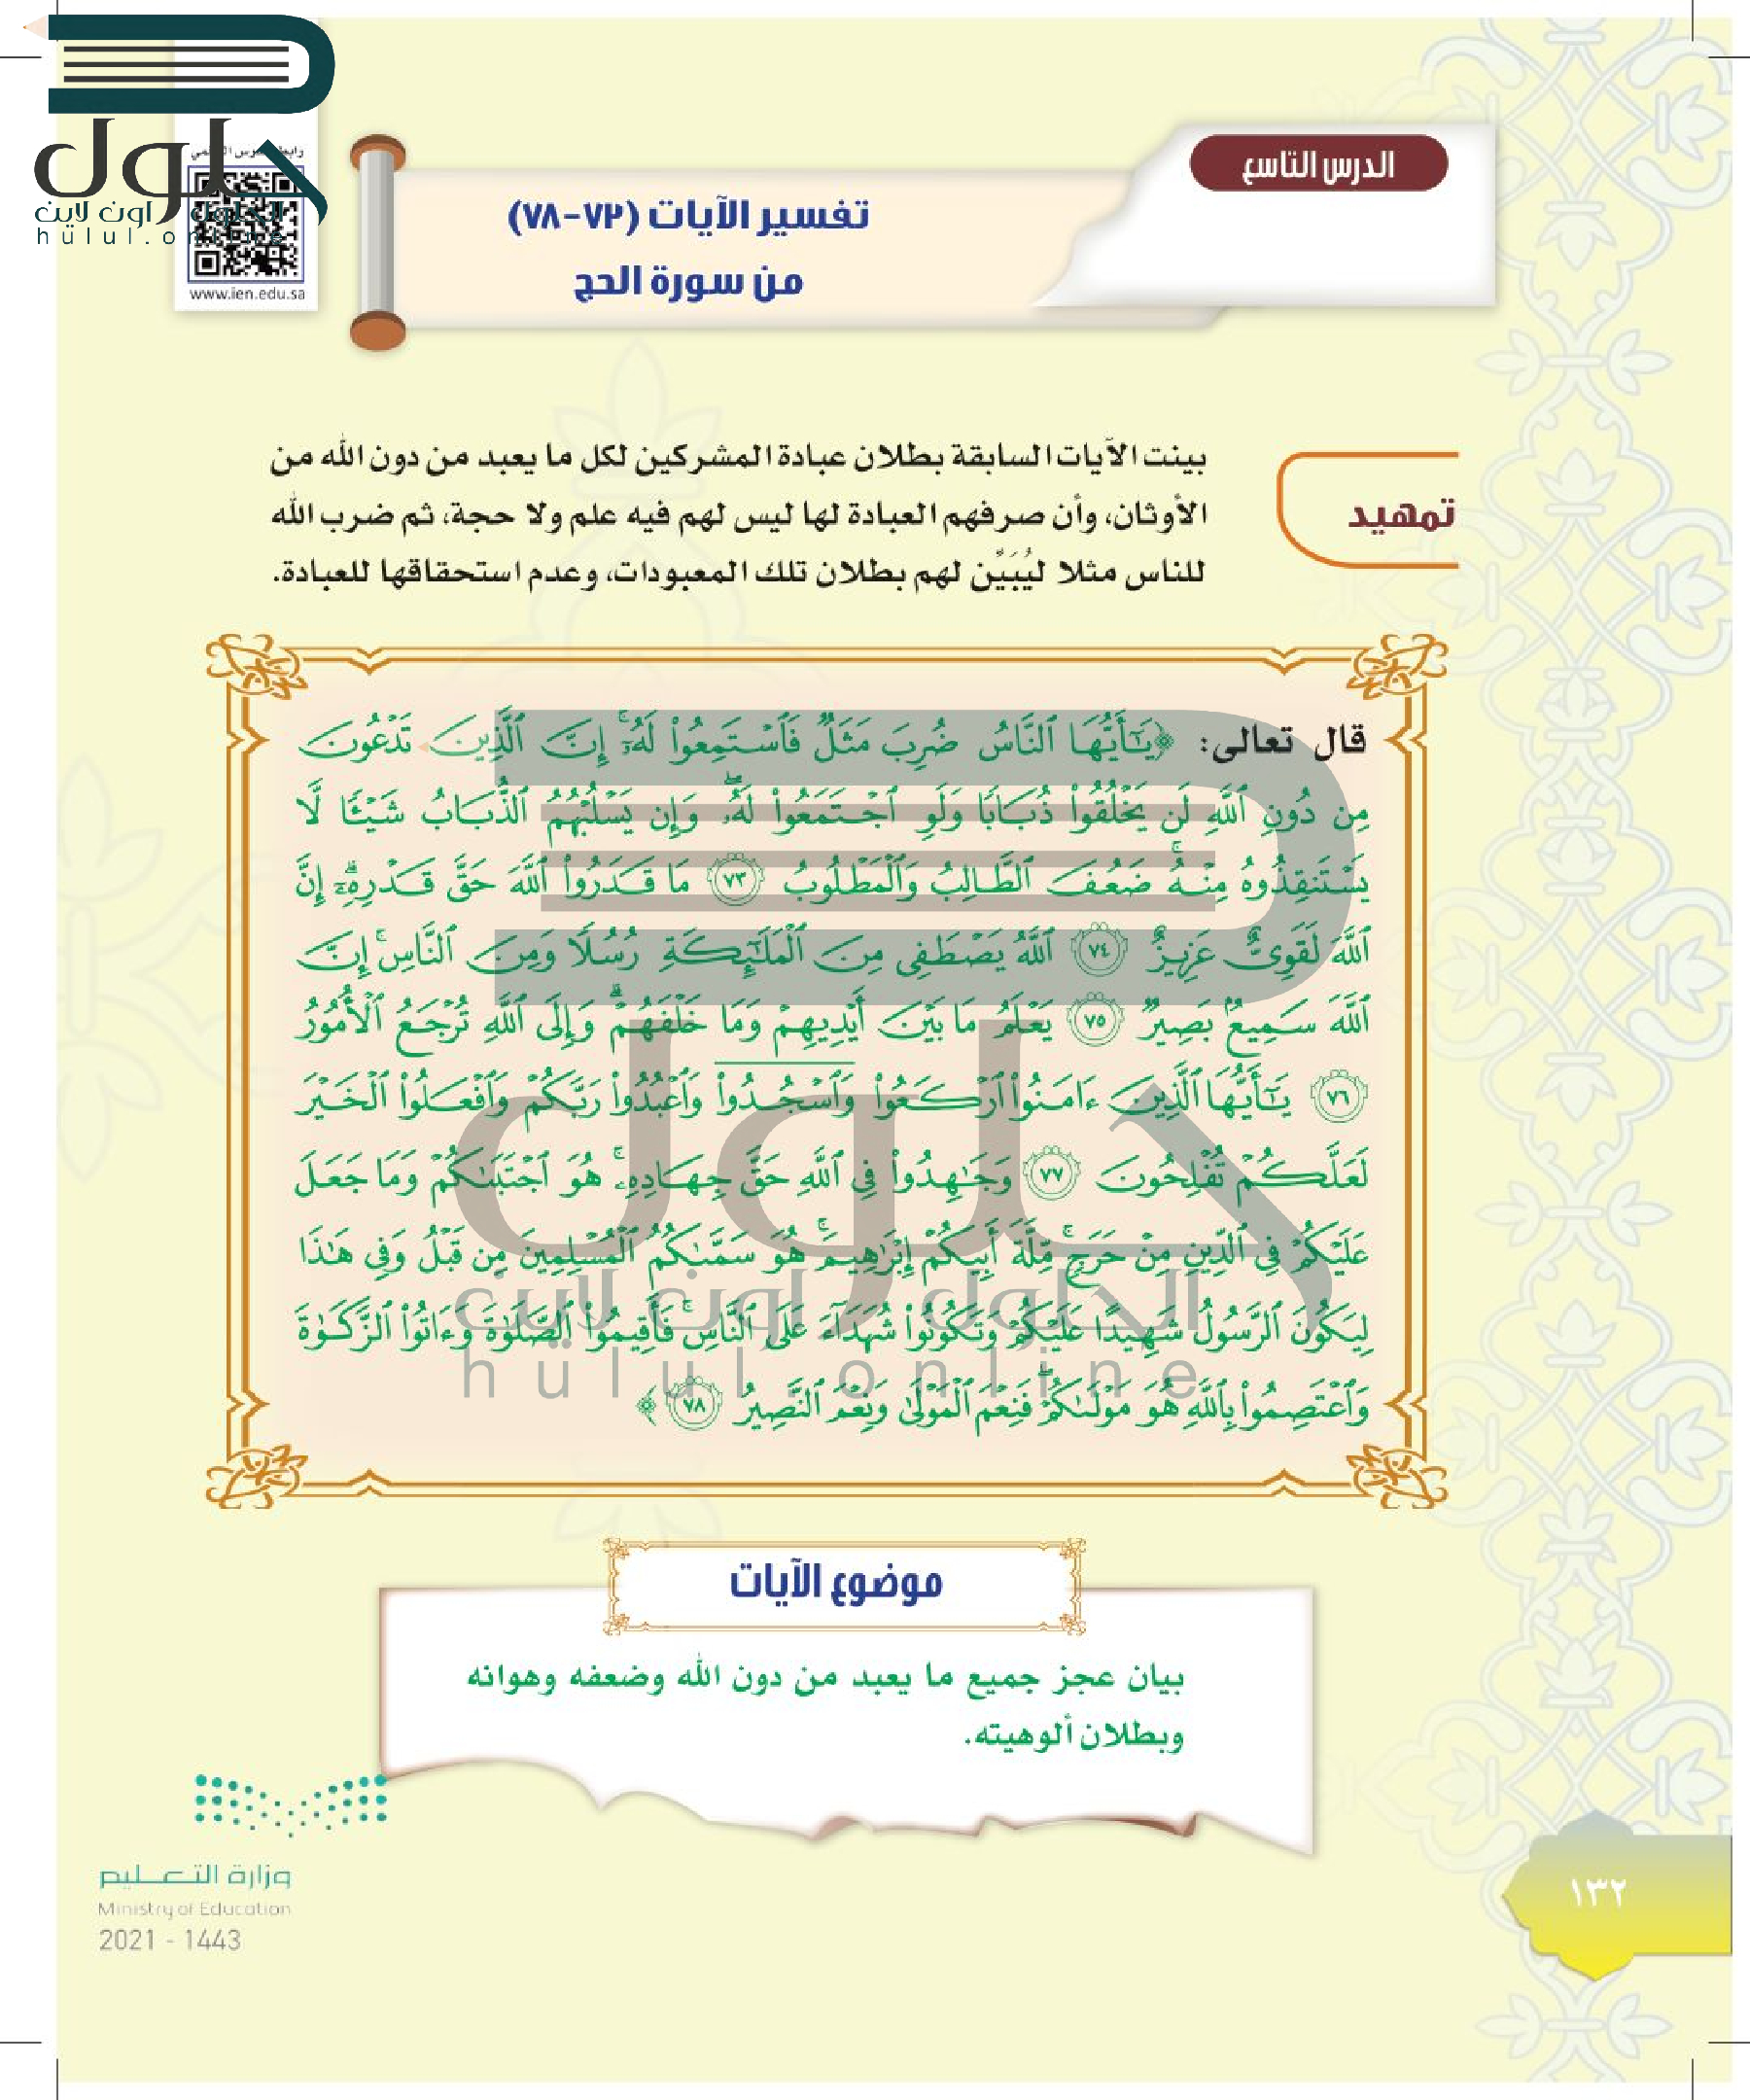 حلول
الحلول اون لاين
hulul.online
www.ien.edu.sa
الدرس التاسع
تفسير الآيات (٧٣-٧٨)
من سورة الحج
تمهيد
بينت الآيات السابقة بطلان عبادة المشركين لكل ما يعبد من دون الله من
الأوثان، وأن صرفهم العبادة لها ليس لهم فيه علم ولا حجة، ثم ضرب الله
للناس مثلا ليُبَيِّن لهم بطلان تلك المعبودات، وعدم استحقاقها للعبادة.
قال تعالى: ﴿يَـٰٓأَيُّهَا ٱلنَّاسُ ضُرِبَ مَثَلٌ فَٱسْتَمِعُوا۟ لَهُۥٓ ۚ إِنَّ ٱلَّذِينَ تَدْعُونَ
مِن دُونِ ٱللَّهِ لَن يَخْلُقُوا۟ ذُبَابًا وَلَوِ ٱجْتَمَعُوا۟ لَهُۥ ۖ وَإِن يَسْلُبْهُمُ ٱلذُّبَابُ شَيْـًٔا لَّا
يَسْتَنقِذُوهُ مِنْهُ ۚ ضَعُفَ ٱلطَّالِبُ وَٱلْمَطْلُوبُ ٧٣ مَا قَدَرُوا۟ ٱللَّهَ حَقَّ قَدْرِهِۦٓ ۗ إِنَّ
ٱللَّهَ لَقَوِىٌّ عَزِيزٌ ٧٤ ٱللَّهُ يَصْطَفِى مِنَ ٱلْمَلَـٰٓئِكَةِ رُسُلًا وَمِنَ ٱلنَّاسِ ۚ إِنَّ
ٱللَّهَ سَمِيعٌۢ بَصِيرٌ ٧٥ يَعْلَمُ مَا بَيْنَ أَيْدِيهِمْ وَمَا خَلْفَهُمْ ۗ وَإِلَى ٱللَّهِ تُرْجَعُ ٱلْأُمُورُ
٧٦ يَـٰٓأَيُّهَا ٱلَّذِينَ ءَامَنُوا۟ ٱرْكَعُوا۟ وَٱسْجُدُوا۟ وَٱعْبُدُوا۟ رَبَّكُمْ وَٱفْعَلُوا۟ ٱلْخَيْرَ
لَعَلَّكُمْ تُفْلِحُونَ ٧٧ وَجَـٰهِدُوا۟ فِى ٱللَّهِ حَقَّ جِهَادِهِۦ ۚ هُوَ ٱجْتَبَىٰكُمْ وَمَا جَعَلَ
عَلَيْكُمْ فِى ٱلدِّينِ مِنْ حَرَجٍ ۚ مِّلَّةَ أَبِيكُمْ إِبْرَٰهِيمَ ۚ هُوَ سَمَّىٰكُمُ ٱلْمُسْلِمِينَ مِن قَبْلُ وَفِى هَـٰذَا
لِيَكُونَ ٱلرَّسُولُ شَهِيدًا عَلَيْكُمْ وَتَكُونُوا۟ شُهَدَآءَ عَلَى ٱلنَّاسِ ۚ فَأَقِيمُوا۟ ٱلصَّلَوٰةَ وَءَاتُوا۟ ٱلزَّكَوٰةَ
وَٱعْتَصِمُوا۟ بِٱللَّهِ هُوَ مَوْلَىٰكُمْ ۖ فَنِعْمَ ٱلْمَوْلَىٰ وَنِعْمَ ٱلنَّصِيرُ ٧٨﴾
حلول
الحلول اون لاين
hulul.online
موضوع الآيات
بيان عجز جميع ما يعبد من دون الله وضعفه وهوانه
وبطلان ألوهيته.
وزارة التعليم
Ministry of Education
2021 - 1443
١٣٢